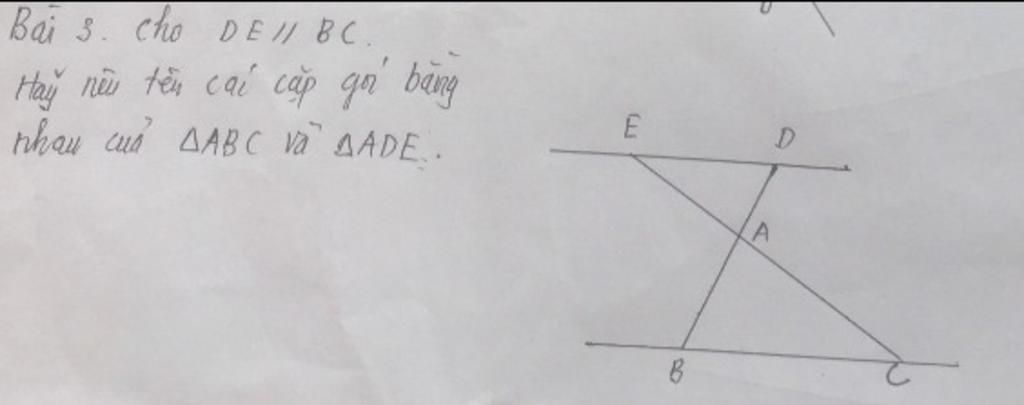 Bài 3. Cho DE // BC.
Hãy nêu tên các cặp góc bằng
nhau của ΔABC và ΔADE.
E
D
A
B
C